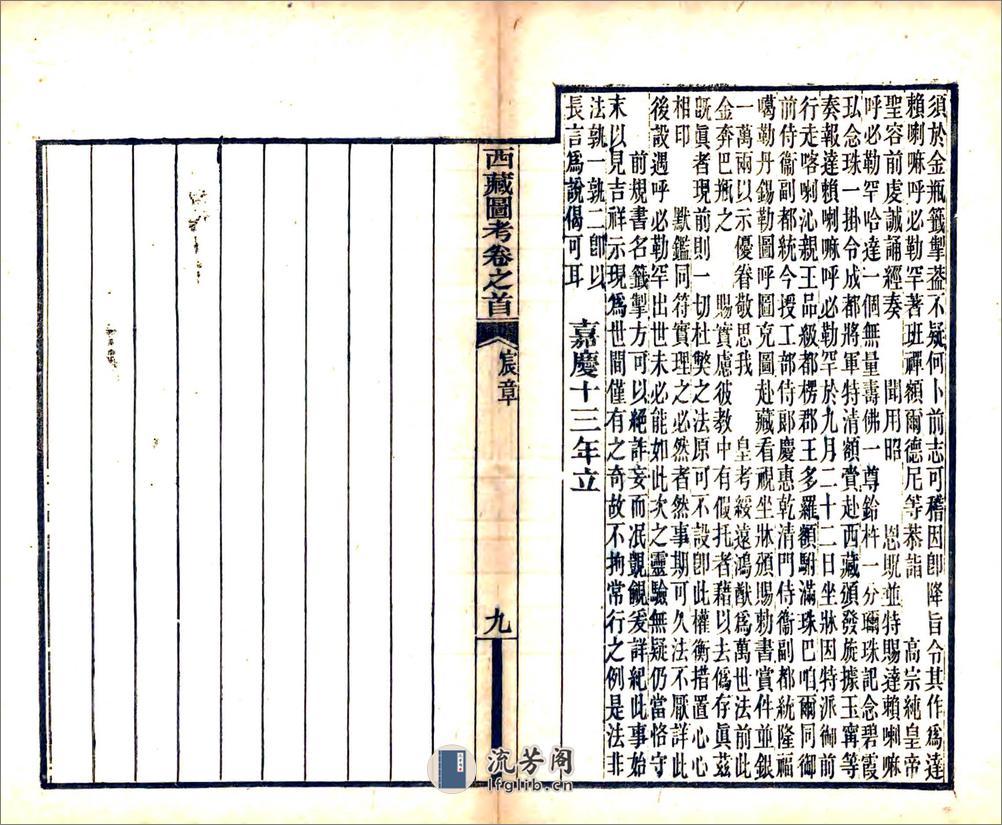 須於金瓶籤掣葢不疑何卜前志可稽因卽降旨令其作爲達
賴喇嘛呼必勒罕著班禪額爾德尼等恭詣　　高宗純皇帝
聖容前虔誠誦經奏　　聞用昭　　恩貺並特賜達賴喇嘛
呼必勒罕哈達一個無量壽佛一尊鈴杵一分璊珠記念碧霞
玜念珠一掛令成都將軍特清額賫赴西藏頒發旋據玉甯等
奏報達賴喇嘛呼必勒罕於九月二十二日坐牀因特派御前
行走喀喇沁親王品級都楞郡王多羅額駙滿珠巴咱爾同御
前侍衞副都統今授工部侍郞慶惠乾清門侍衞副都統隆福
噶勒丹錫勒圖呼圖克圖赴藏看視坐牀頒賜勅書賞件並銀
一萬兩以示優眷敬思我　　皇考綏遠鴻猷爲萬世法前此
金奔巴瓶之　　賜實慮彼教中有假托者藉以去僞存眞茲
旣眞者現前則一切杜獘之法原可不設卽此權衡措置心心
相印　　默鑑同符實理之必然者然事期可久法不厭詳此
後設遇呼必勒罕出世未必能如此次之靈驗無疑仍當恪守
前規書名籤掣方可以絕詐妄而泯覬覦爰詳紀此事始
末以見吉祥示現爲世間僅有之奇故不拘常行之例是法非
法孰一孰二卽以
長言爲說偈可耳
嘉慶十三年立
西藏圖考卷之首
宸章
九
流芳阁
lfglib.cn